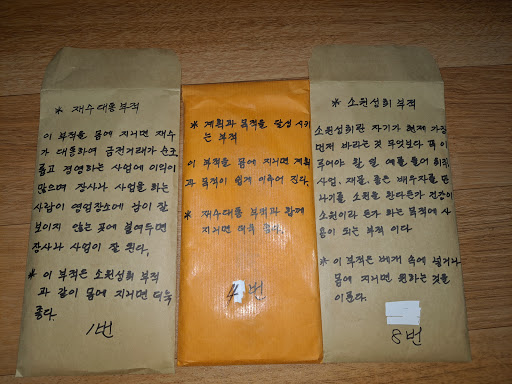 * 재수대통부적
이 부적을 몸에 지니면 재수
가 대통하여 금전거래가 순조
롭고 경영하는 사업에 이익이
많으며 장사나 사업을 하는
사람이 영업장소에 남이 잘
보이지 않는 곳에 붙여두면
장사나 사업이 잘 된다.
* 이 부적은 소원성취 부적
과 같이 몸에 지니면 더욱
좋다.
1번
* 계획과 목적을 달성 시키
는 부적
이 부적을 몸에 지니면 계획
과 목적이 쉽게 이루어 진다.
* 재수대통 부적과 함께
지니면 더욱 좋다.
4번
* 소원성취 부적
소원성취란 자기가 현재 가장
먼저 바라는 것 무엇보다 꼭 이
루어야 할 일 예를 들어 취직,
사업, 재물, 좋은 배우자를 만
나기를 소원을 한다든가 건강이
소원이라 든가 하는 목적에 사
용이 되는 부적 이다
* 이 부적은 베개 속에 넣거나
몸에 지니면 원하는 것을
이룬다.
8번